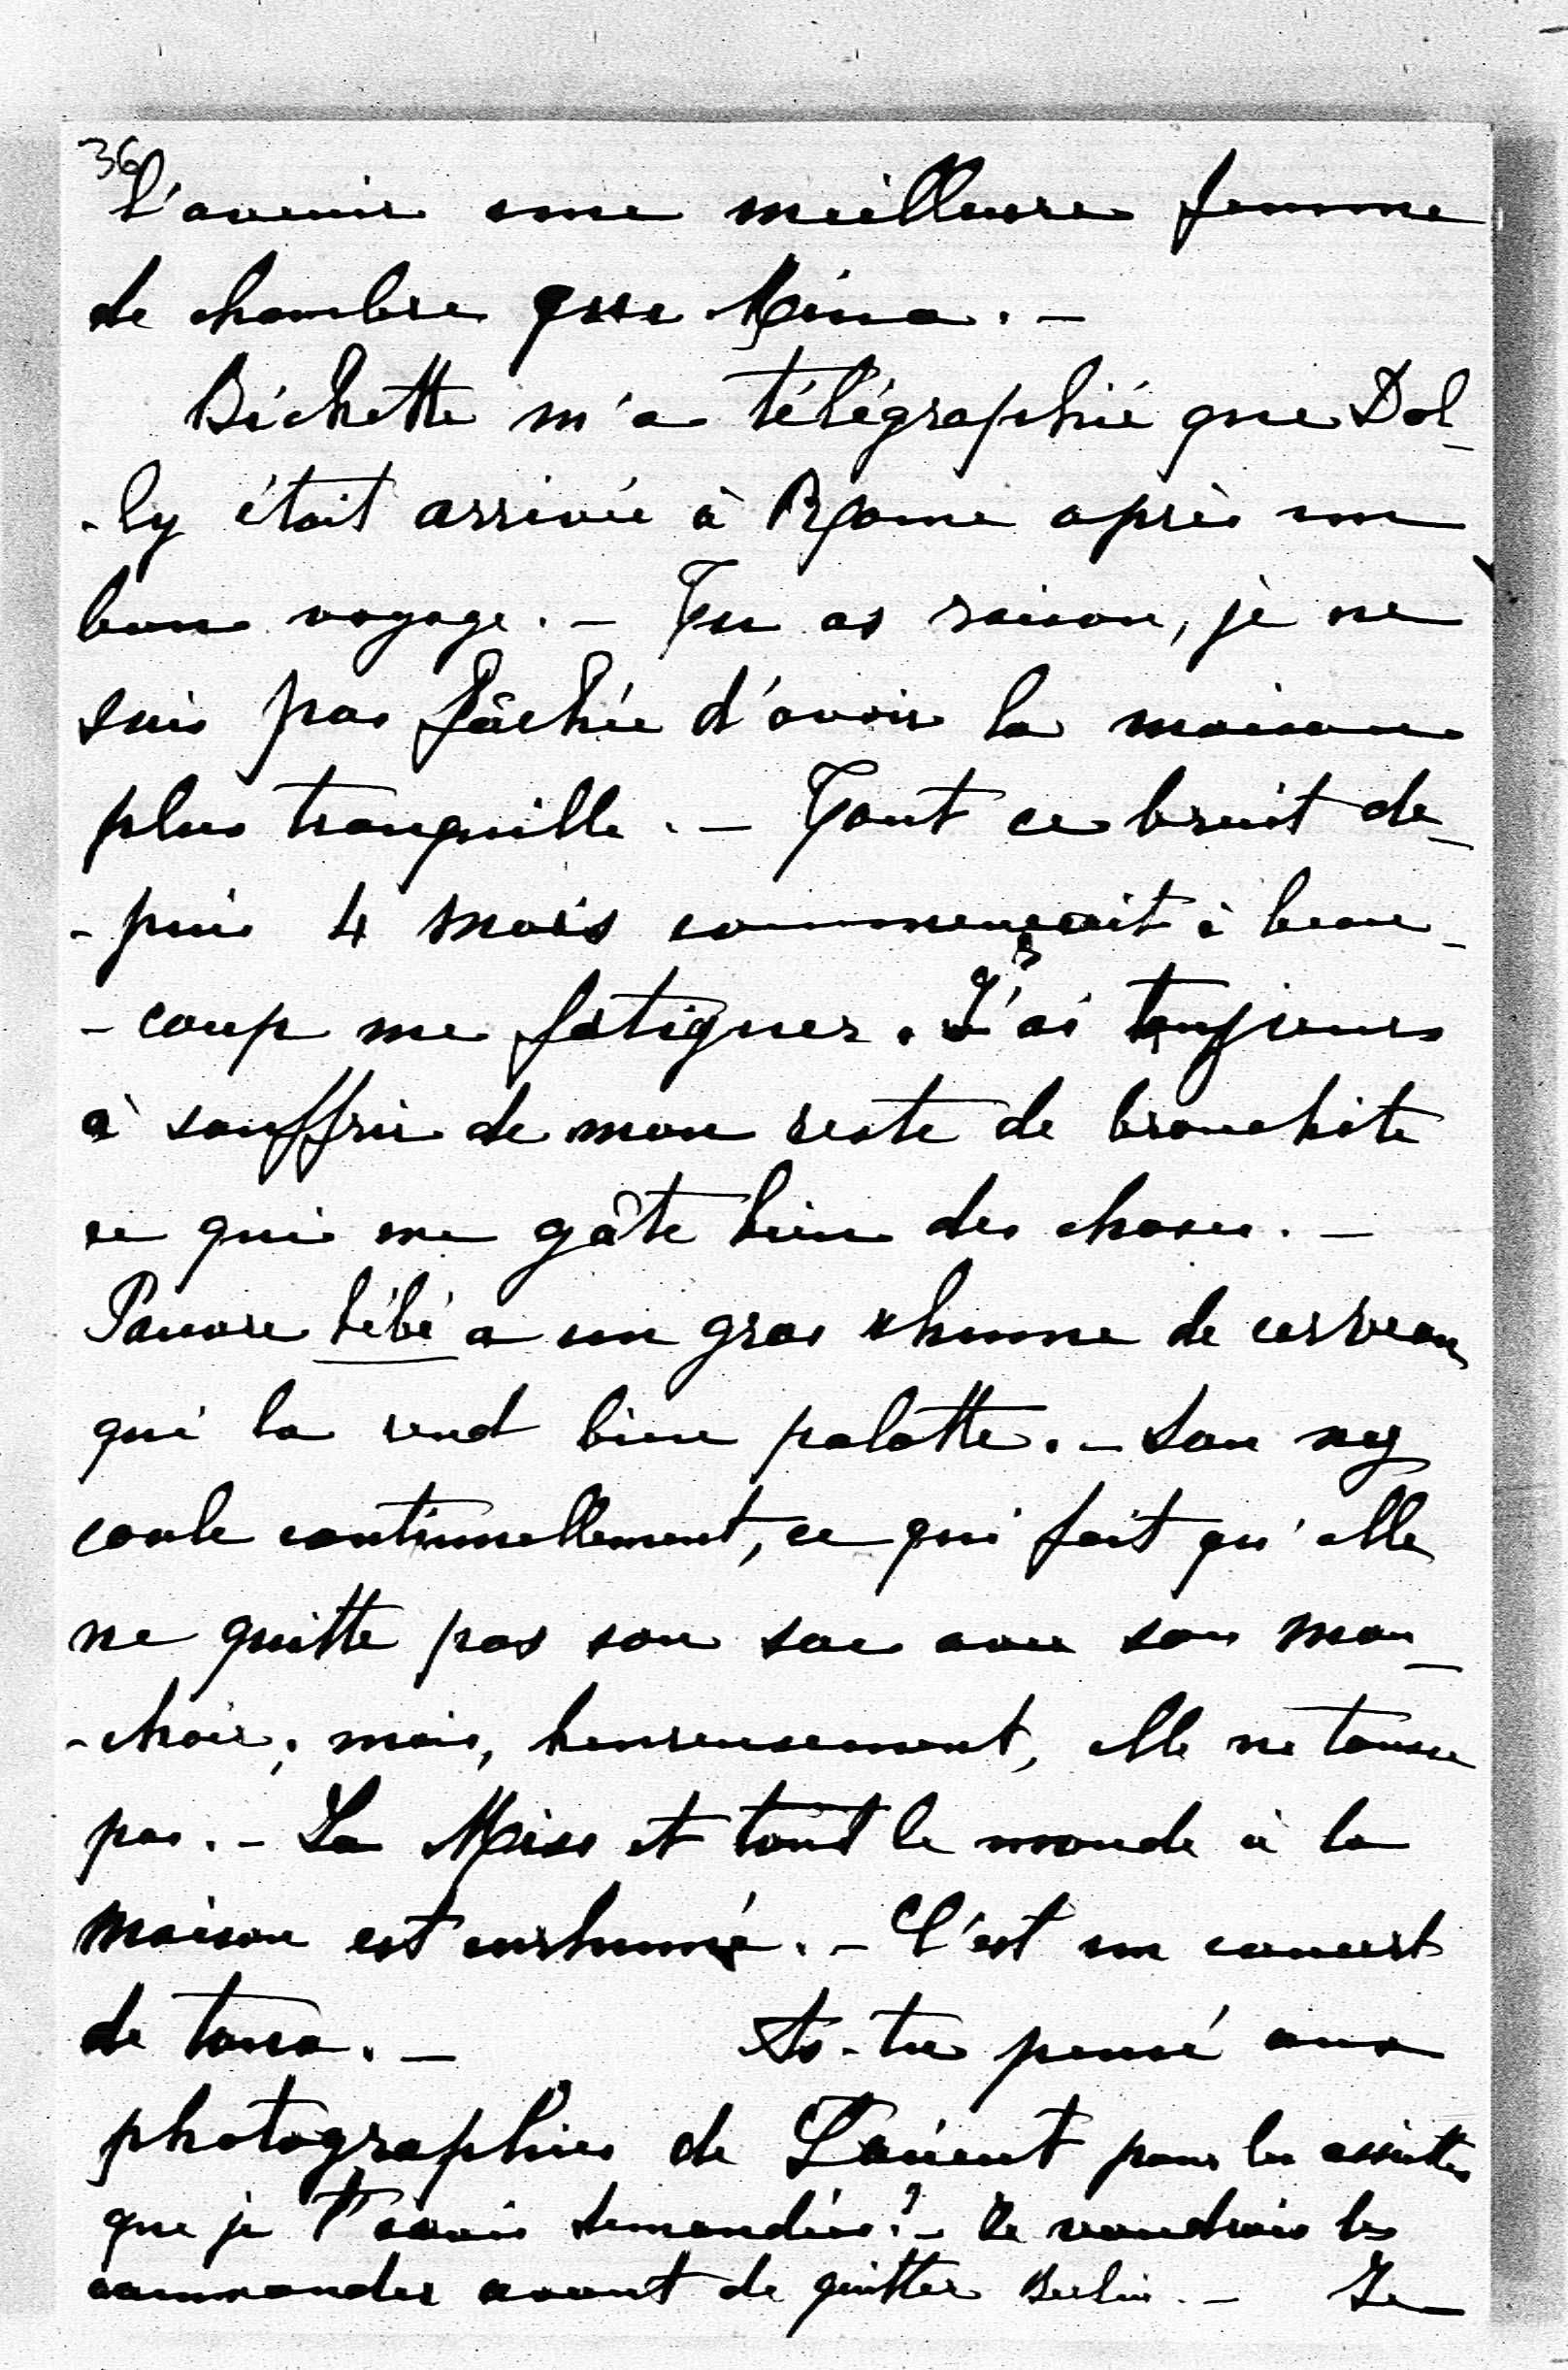 36
l'avenir une meilleure femme
de chambre que Mina. –
Bichette m'a télégraphié que Dol-
-ly était arrivée à Rome après un
bon voyage. – Tu as raison, je ne
suis pas fâchée d'avoir la maison
plus tranquille. – Tout ce bruit de-
-puis 4 mois commençait à beau-
-coup me fatiguer. J'ai toujours
à souffrir de mon reste de bronchite
ce qui me gâte bien des choses. –
Pauvre bébé a un gros rhume de cerveau
qui la rend bien palotte. – Son nez
coule continuellement, ce qui fait qu'elle
ne quitte pas son sac avec son mou-
-choir; mais, heureusement, elle ne tousse
pas. – La Miss et tout le monde à la
maison est enrhumé. – C'est un concert
de toux. – As-tu pensé aux
photographies de pour les assiettes
que je t'avais demandées? – Je voudrais les
commander avant de quitter Berlin. – Je